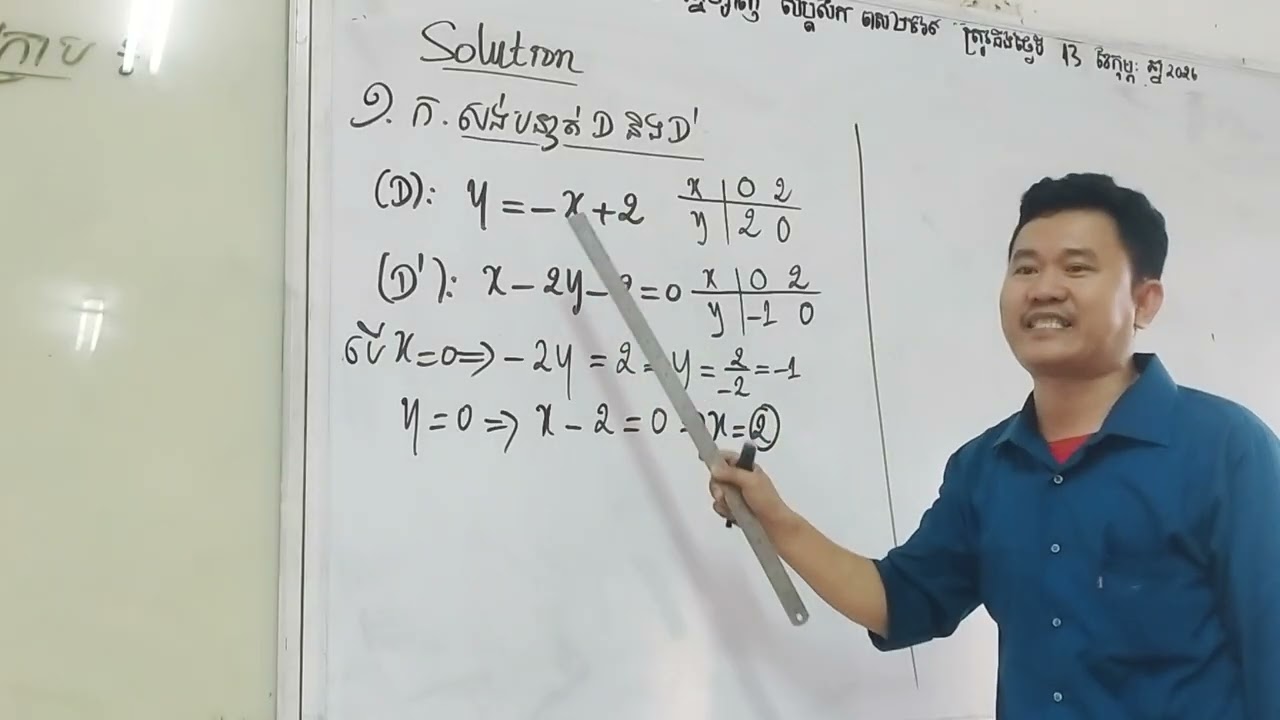 ត្រូវនឹងថ្ងៃទី 13 ខែកុម្ភៈ ឆ្នាំ 2026
Solution
១. ក. សង់បន្ទាត់ D និង D'
(D): y = -x + 2
x | 0 2
y | 2 0
(D'): x - 2y - 2 = 0
x | 0 2
y | -1 0
បើ x = 0 => -2y = 2 => y = 2/-2 = -1
y = 0 => x - 2 = 0 => x = 2